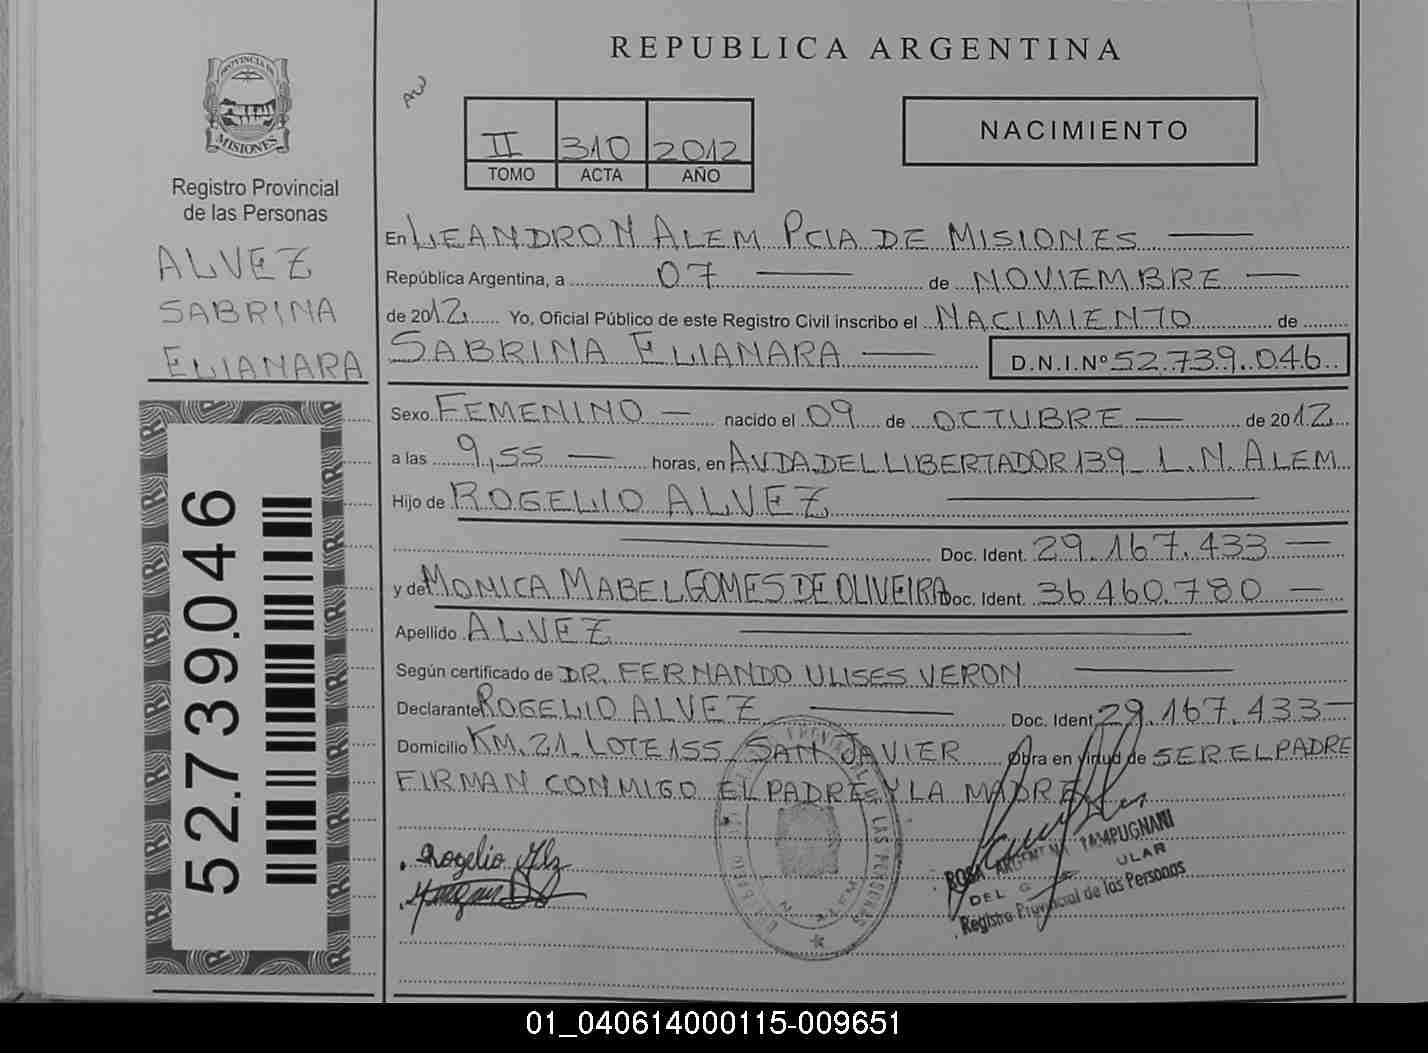 REPUBLICA ARGENTINA
PROVINCIA DE
MISIONES
Registro Provincial
de las Personas
ALVEZ
SABRINA
ELIANARA
52.739.046
II 310 2012
TOMO ACTA AÑO
NACIMIENTO
En LEANDRO N ALEM PCIA DE MISIONES
República Argentina, a 07 de NOVIEMBRE
de 2012 Yo, Oficial Público de este Registro Civil inscribo el NACIMIENTO de
SABRINA ELIANARA D.N.I.Nº 52.739.046
Sexo FEMENINO nacido el 09 de OCTUBRE de 2012
a las 9,55 horas, en AVDA DEL LIBERTADOR 139 L.N. ALEM
Hijo de ROGELIO ALVEZ
Doc. Ident. 29.167.433
y de MONICA MABEL GOMES DE OLIVEIRA Doc. Ident. 36.460.780
Apellido ALVEZ
Según certificado de DR. FERNANDO ULISES VERON
Declarante ROGELIO ALVEZ Doc. Ident. 29.167.433
Domicilio KM. 21 LOTE 155 SAN JAVIER Obra en virtud de SER EL PADRE
FIRMAN CONMIGO EL PADRE Y LA MADRE
Rogelio Alz
LAS PERSONAS
N. ALEM
ROSA ARGENTINA TAMPUGNARI
DEL
ULAR
Registro Provincial de las Personas
01_040614000115-009651